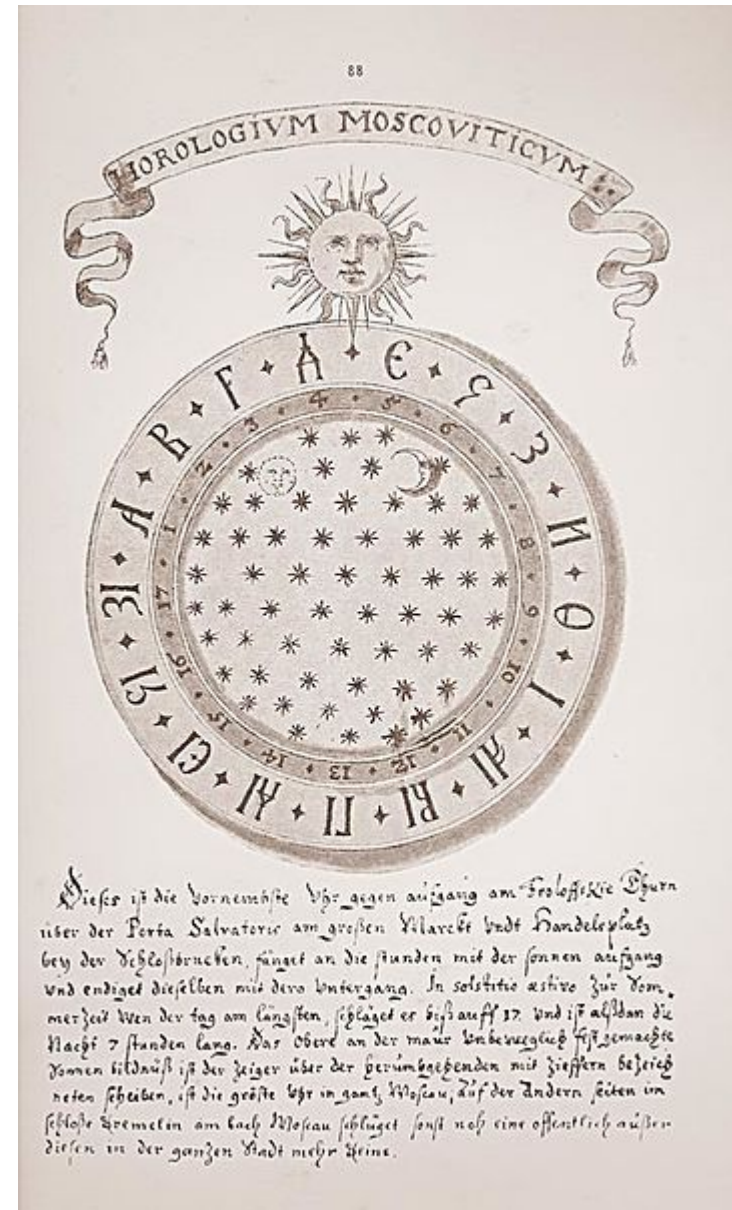 88
HOROLOGIVM MOSCOVITICVM
А В Г Д Є Ѕ З И Ѳ І АІ ВІ ГІ ДІ ЕІ ЅІ ЗІ
1 2 3 4 5 6 7 8 9 10 11 12 13 14 15 16 17
Dieses ist die Vornembste Vhr gegen aufgang am Froloffskie Thurn
über der Porta Salvatoris am großen Marckt Vndt Handelsplatz
bey der Schloßbrucken, fänget an die stunden mit der sonnen aufgang
Vnd endiget dieselben mit dero Vntergang. In solstitio æstivo Zür Som-
merZeit Wen der tag am längsten, schläget es biß auff 17. Vnd ist alßdan die
Nacht 7 stunden lang. Das Obere an der maür Vnbeweeglich fest gemachte
Sonnen bildnüß ist der Zeiger über der herumbgehenden mit Zieffern beZeich
neten scheiben, ist die größte Vhr in gantz Moscau, Auf der Andern seiten im
schloße Kremelin am bach Moscau schlüget sonst noh eine offentlich außer
diesen in der ganzen Stadt mehr Keine.